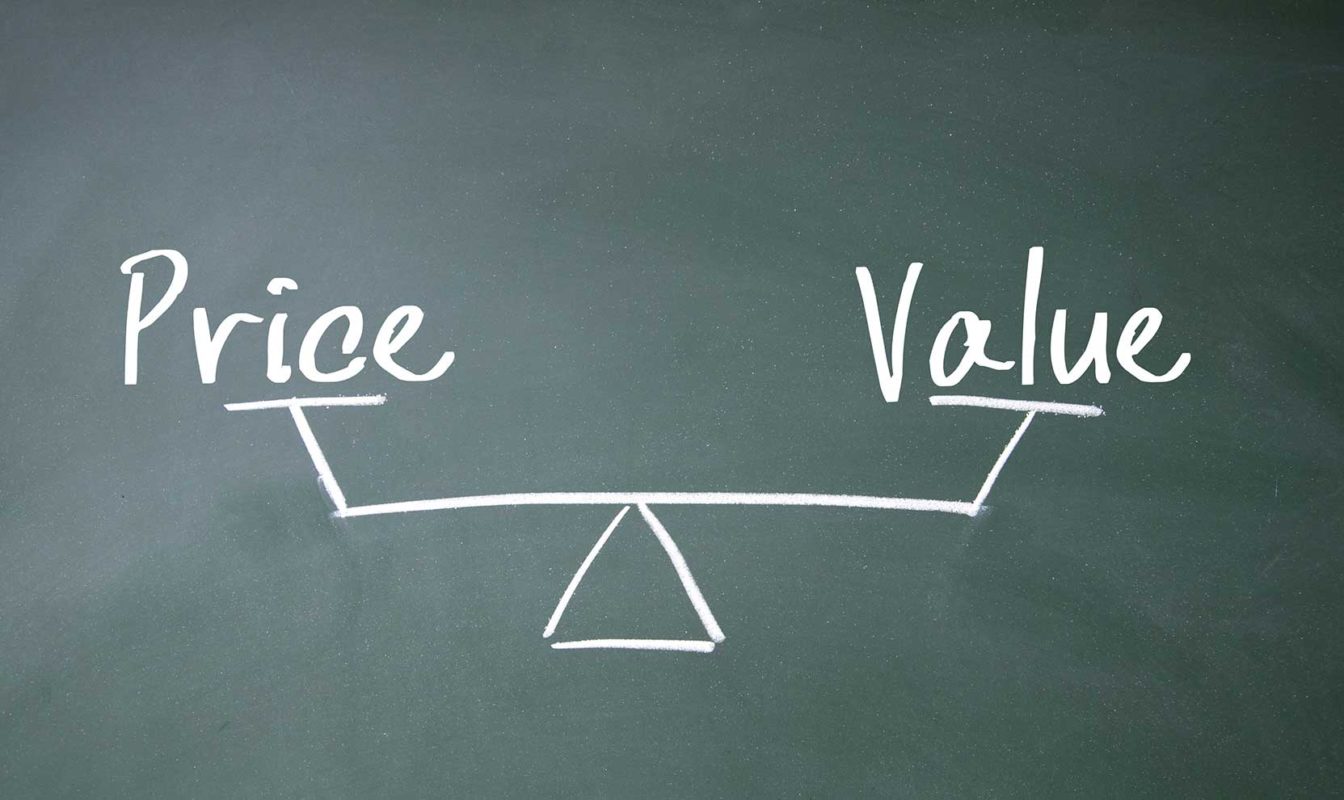 Price Value